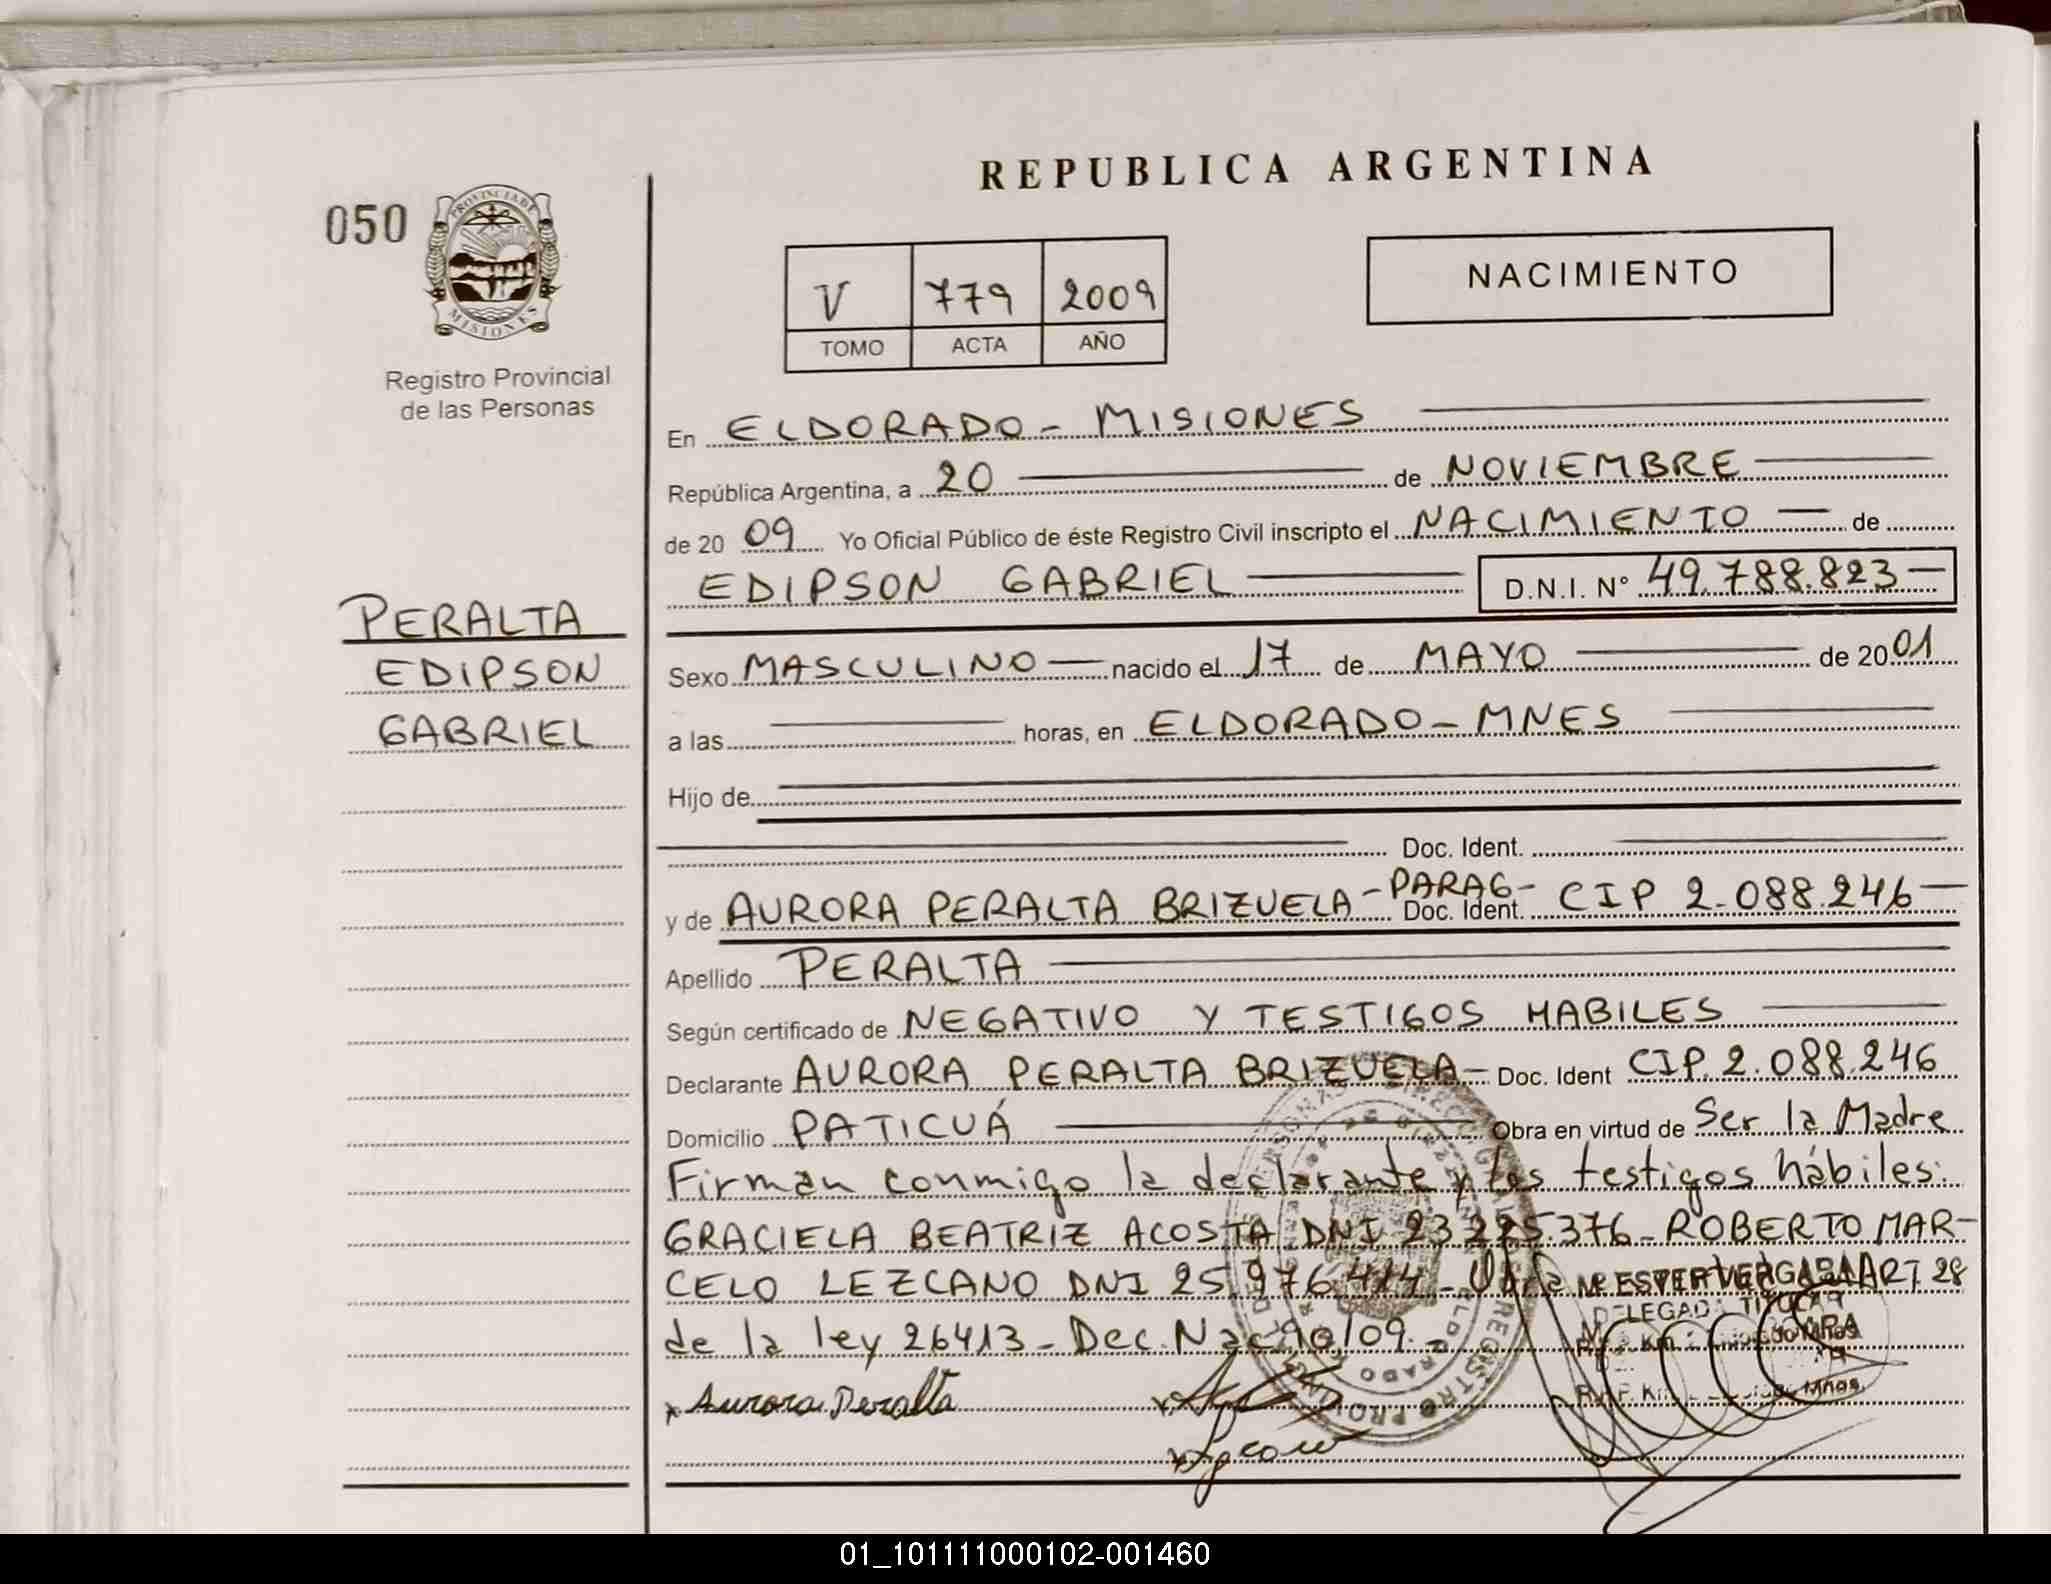 REPUBLICA ARGENTINA
050
PROVINCIA DE
MISIONES
Registro Provincial
de las Personas
V 779 2009
TOMO ACTA AÑO
NACIMIENTO
PERALTA
EDIPSON
GABRIEL
En ELDORADO - MISIONES
República Argentina, a 20 de NOVIEMBRE
de 20 09 Yo Oficial Público de éste Registro Civil inscripto el NACIMIENTO de
EDIPSON GABRIEL D.N.I. Nº 49.788.823
Sexo MASCULINO nacido el 17 de MAYO de 2001
a las horas, en ELDORADO - MNES
Hijo de
Doc. Ident.
y de AURORA PERALTA BRIZUELA - PARAG - Doc. Ident. CIP 2.088.246
Apellido PERALTA
Según certificado de NEGATIVO Y TESTIGOS HABILES
Declarante AURORA PERALTA BRIZUELA - Doc. Ident CIP. 2.088.246
Domicilio PATICUÁ Obra en virtud de Ser la Madre
Firman conmigo la declarante y los testigos hábiles:
GRACIELA BEATRIZ ACOSTA DNI 23.225.376 - ROBERTO MAR-
CELO LEZCANO DNI 25.976.414 - ART. 28
de la ley 26413 - Dec. Nac 90/09 -
M. ESTER VERGARA
DELEGADA TITULAR
x Aurora Peralta
01_101111000102-001460